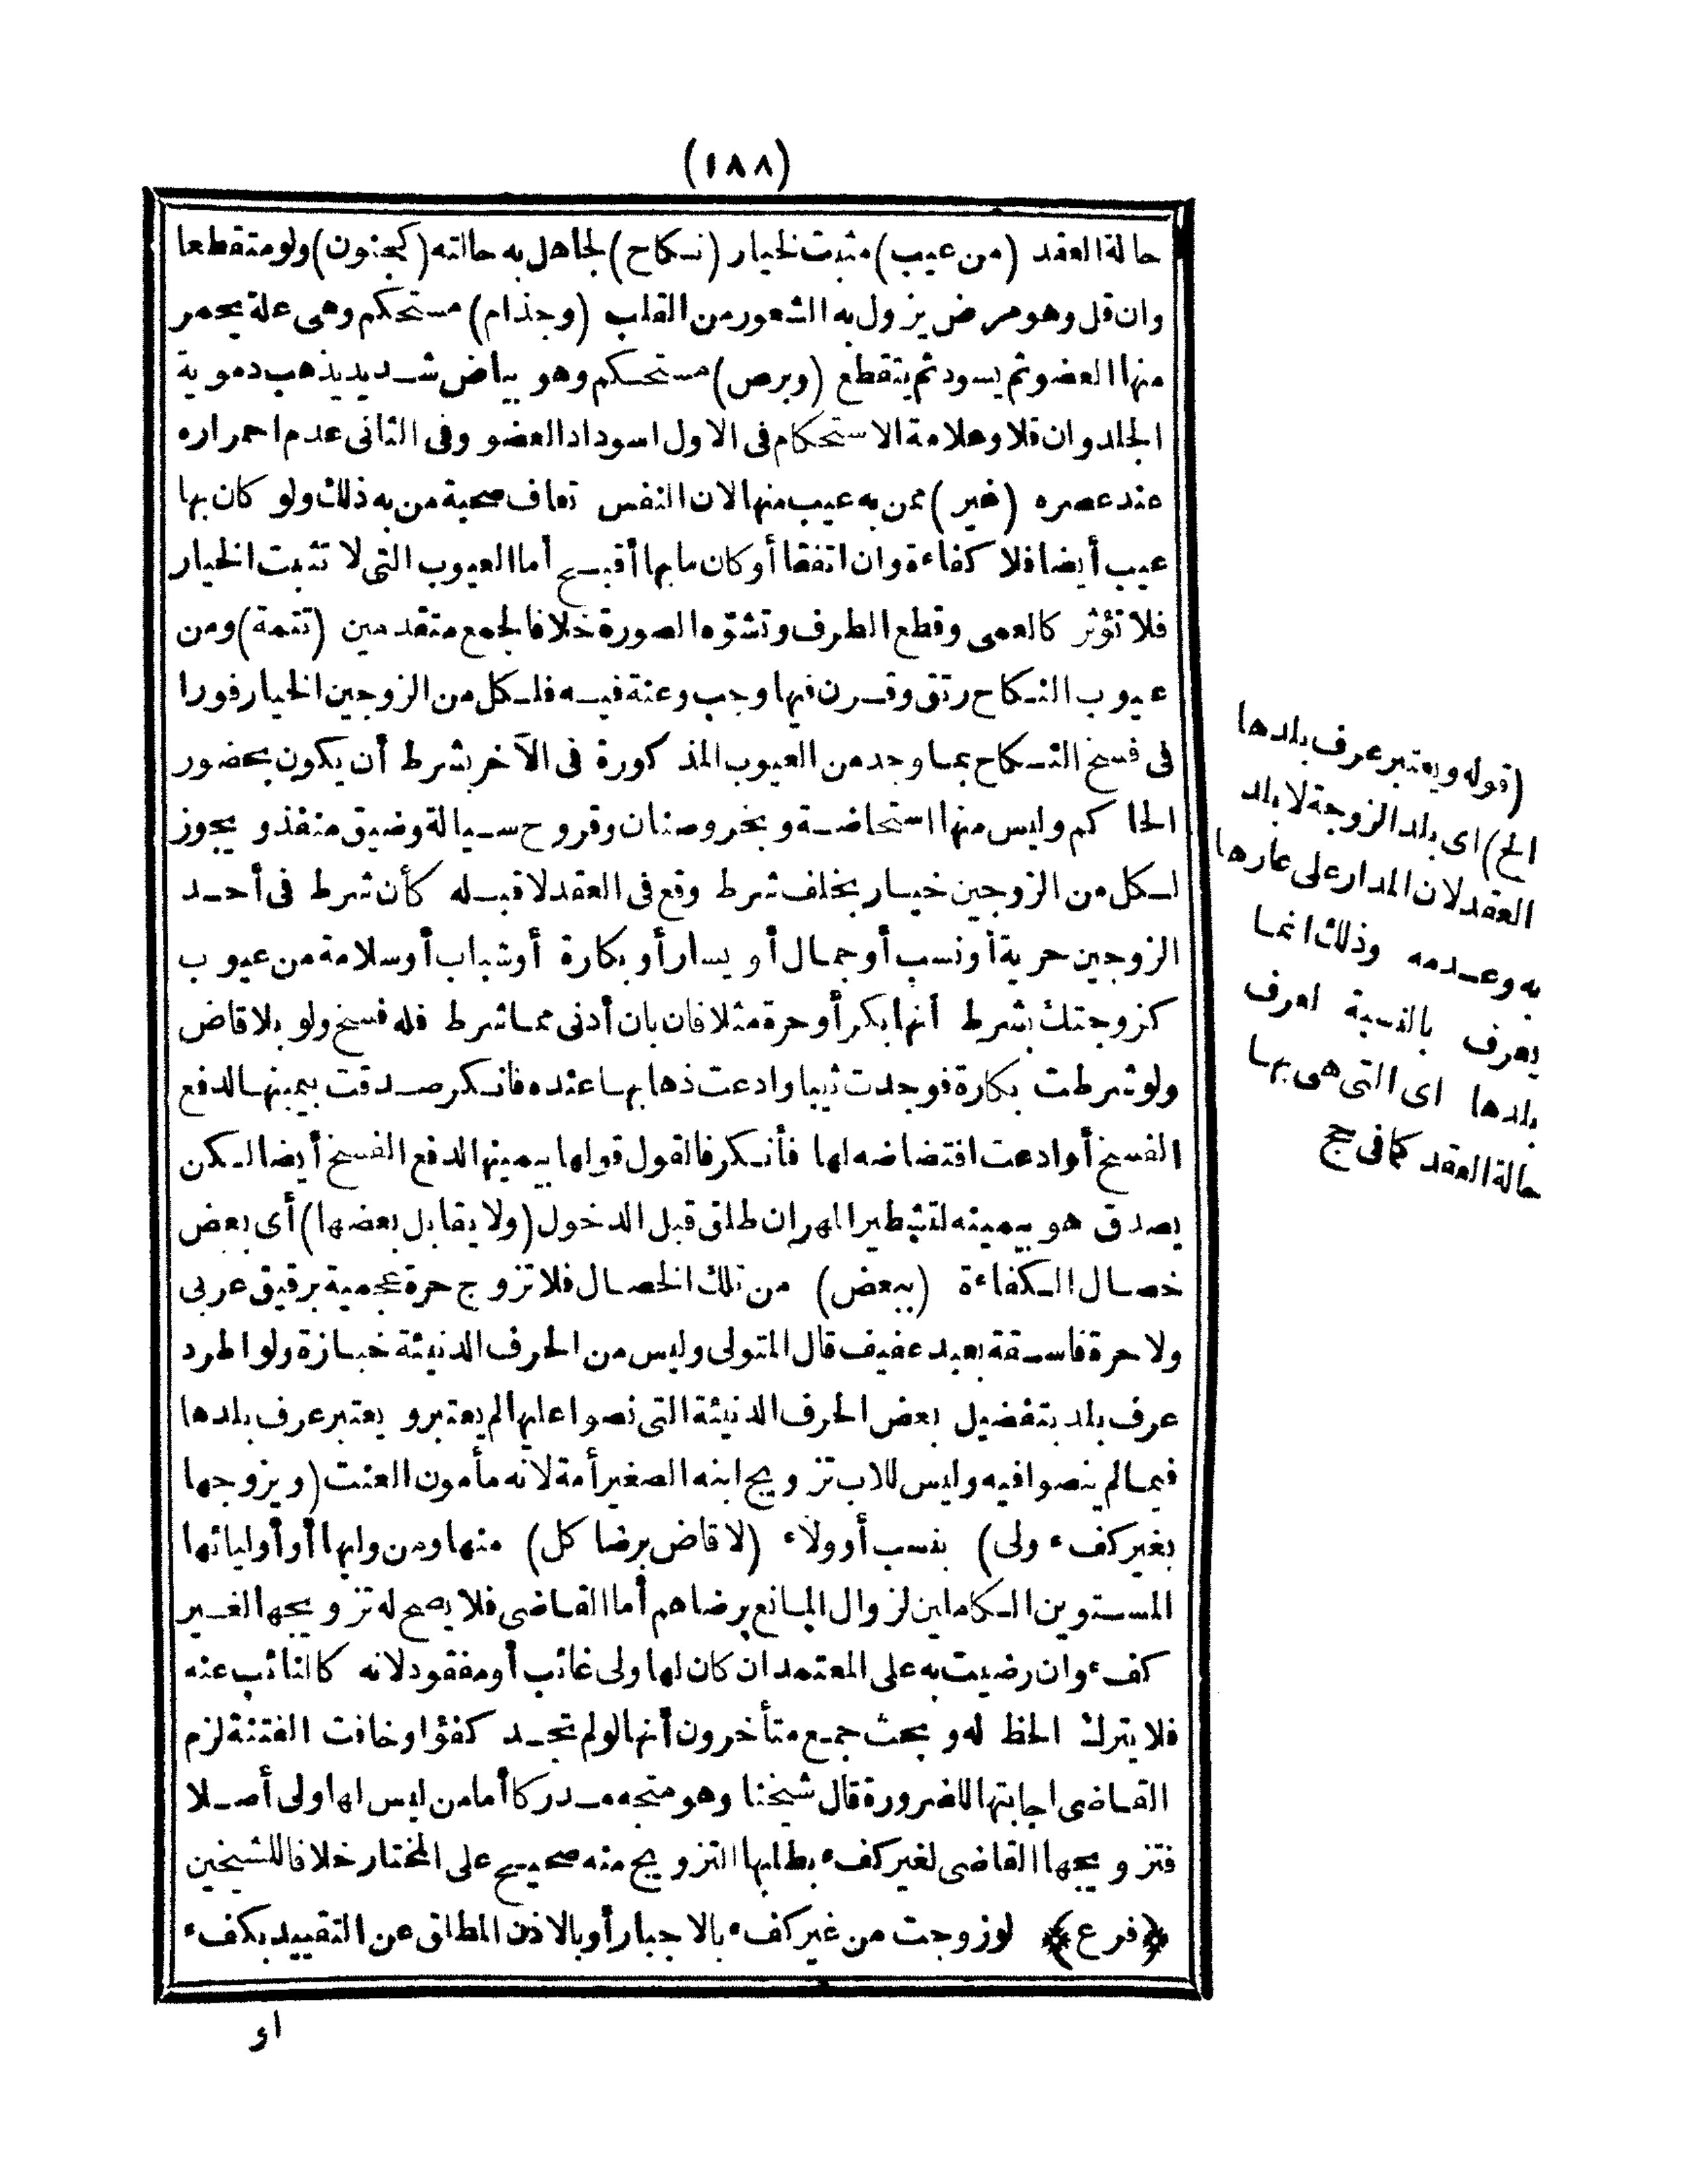 (١٨٨)
حالة العقد (من عيب) مثبت لخيار (نكاح) لجاهل به حالته (كجنون) ولو متقطعا
وان قل وهو مرض يزول به الشعور من القلب (وجذام) مستحكم وهى علة يحمر
منها العضو ثم يسود ثم يتقطع (وبرص) مستحكم وهو بياض شديد يذهب دموية
الجلد وان قلا وعلامة الاستحكام فى الاول اسوداد العضو وفى الثانى عدم احمراره
عند عصره (غير) ممن به عيب منها لان النفس تعاف صحبة من به ذلك ولو كان بها
عيب أيضا فلا كفاءة وان اتفقا أو كان ما بها أقبح أما العيوب التى لا تثبت الخيار
فلا تؤثر كالعمى وقطع الطرف وتشوّه الصورة خلافا لجمع متقدمين (تتمة) ومن
عيوب النكاح رتق وقرن فيها وجب وعنة فيه فلكل من الزوجين الخيار فورا
فى فسخ النكاح بما وجد من العيوب المذكورة فى الآخر بشرط أن يكون بحضور
الحاكم وليس منها استحاضة وبخر وصنان وقروح سيالة وضيق منفذ ويجوز
لكل من الزوجين خيار بخلف شرط وقع فى العقد لا قبله كأن شرط فى أحد
الزوجين حرية أو نسب أو جمال أو يسار أو بكارة أو شباب أو سلامة من عيوب
كزوجتك بشرط أنها بكر أو حرة مثلا فان بان أدنى مما شرط فله فسخ ولو بلا قاض
ولو شرطت بكارة فوجدت ثيبا وادعت ذهابها عنده فانكر صدقت بيمينها لدفع
الفسخ أو ادعت افتضاضه لها فأنكر فالقول قولها بيمينها لدفع الفسخ أيضا لكن
يصدق هو بيمينه لتشطير المهر ان طلق قبل الدخول (ولا يقابل بعضها) أى بعض
خصال الكفاءة (ببعض) من تلك الخصال فلا تزوج حرة عجمية برقيق عربى
ولا حرة فاسقة بعبد عفيف قال المتولى وليس من الحرف الدنيئة خبازة ولو اطرد
عرف بلد بتفضيل بعض الحرف الدنيئة التى نصوا عليها لم يعتبر ويعتبر عرف بلدها
فيما لم ينصوا فيه وليس للاب تزويج ابنه الصغير أمة لانه مأمون العنت (ويزوجها
بغير كفء ولى) بنسب أو ولاء (لا قاض برضا كل) منها ومن وليها أو أوليائها
المستوين الكاملين لزوال المانع برضاهم أما القاضى فلا يصح له تزويجها الغير
كفء وان رضيت به على المعتمد ان كان لها ولى غائب أو مفقود لانه كالنائب عنه
فلا يترك الحظ له وبحث جمع متأخرون أنها لو لم تجد كفؤا وخافت الفتنة لزم
القاضى اجابتها للضرورة قال شيخنا وهو متجه مدركا أما من ليس لها ولى أصلا
فتزويجها القاضى لغير كفء بطلبها التزويج منه صحيح على المختار خلافا للشيخين
﴿فرع﴾ لو زوجت من غير كفء بالاجبار أو بالاذن المطلق عن التقييد بكفء
او
(قوله ويعتبر عرف بلدها
الخ) اى بلد الزوجة لا بلد
العقد لان المدار على عارها
به وعدمه وذلك انما
يعرف بالنسبة لعرف
بلدها اى التى هى بها
حالة العقد كما فى حج